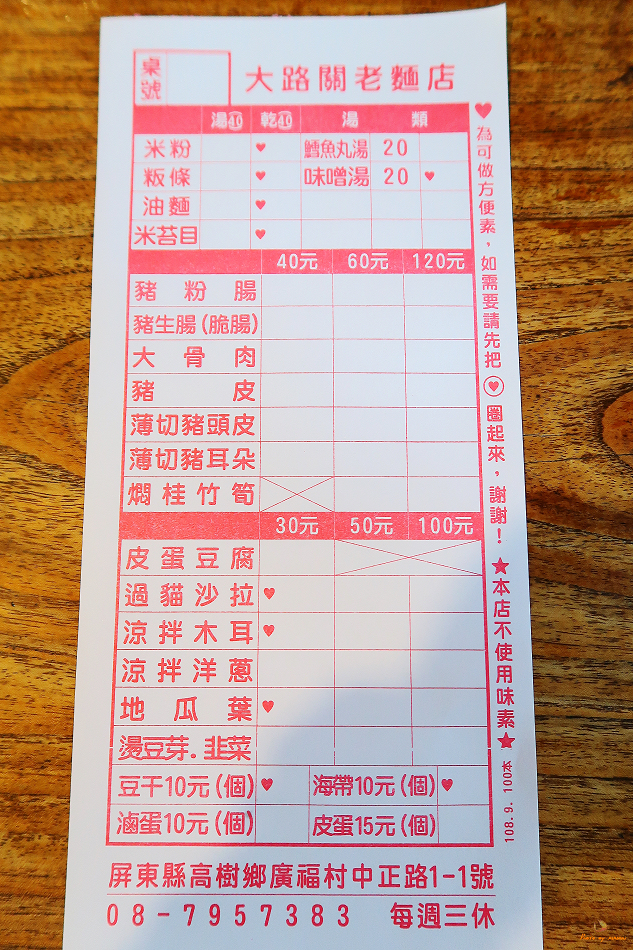 桌號
大路關老麵店
湯40 乾40 湯類
米粉 ♥ 鱈魚丸湯 20
粄條 ♥ 味噌湯 20 ♥
油麵 ♥
米苔目 ♥
40元 60元 120元
豬粉腸
豬生腸(脆腸)
大骨肉
豬皮
薄切豬頭皮
薄切豬耳朵
燜桂竹筍
30元 50元 100元
皮蛋豆腐
過貓沙拉 ♥
涼拌木耳 ♥
涼拌洋蔥
地瓜葉 ♥
燙豆芽.韭菜
豆干10元(個) ♥ 海帶10元(個) ♥
滷蛋10元(個) 皮蛋15元(個)
♥為可做方便素，如需要請先把♥圈起來，謝謝！★本店不使用味素★
108.9. 100本
屏東縣高樹鄉廣福村中正路1-1號
08-7957383 每週三休